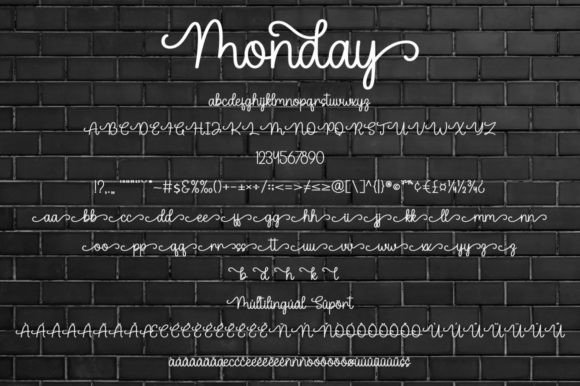 Monday
abcdefghijklmnopqrstuvwxyz
ABCDEFGHIJKLMNOPQRSTUVWXYZ
1234567890
~#$&%‰()+-±×÷/:;<=>≠≤≥@[\]^{|}®©™¢€£¤¼½¾¿
aa bb cc dd ee ff gg hh ii jj kk ll mm nn
oo pp qq rr ss tt uu vv ww xx yy zz
b d h k l
Multilingual Suport